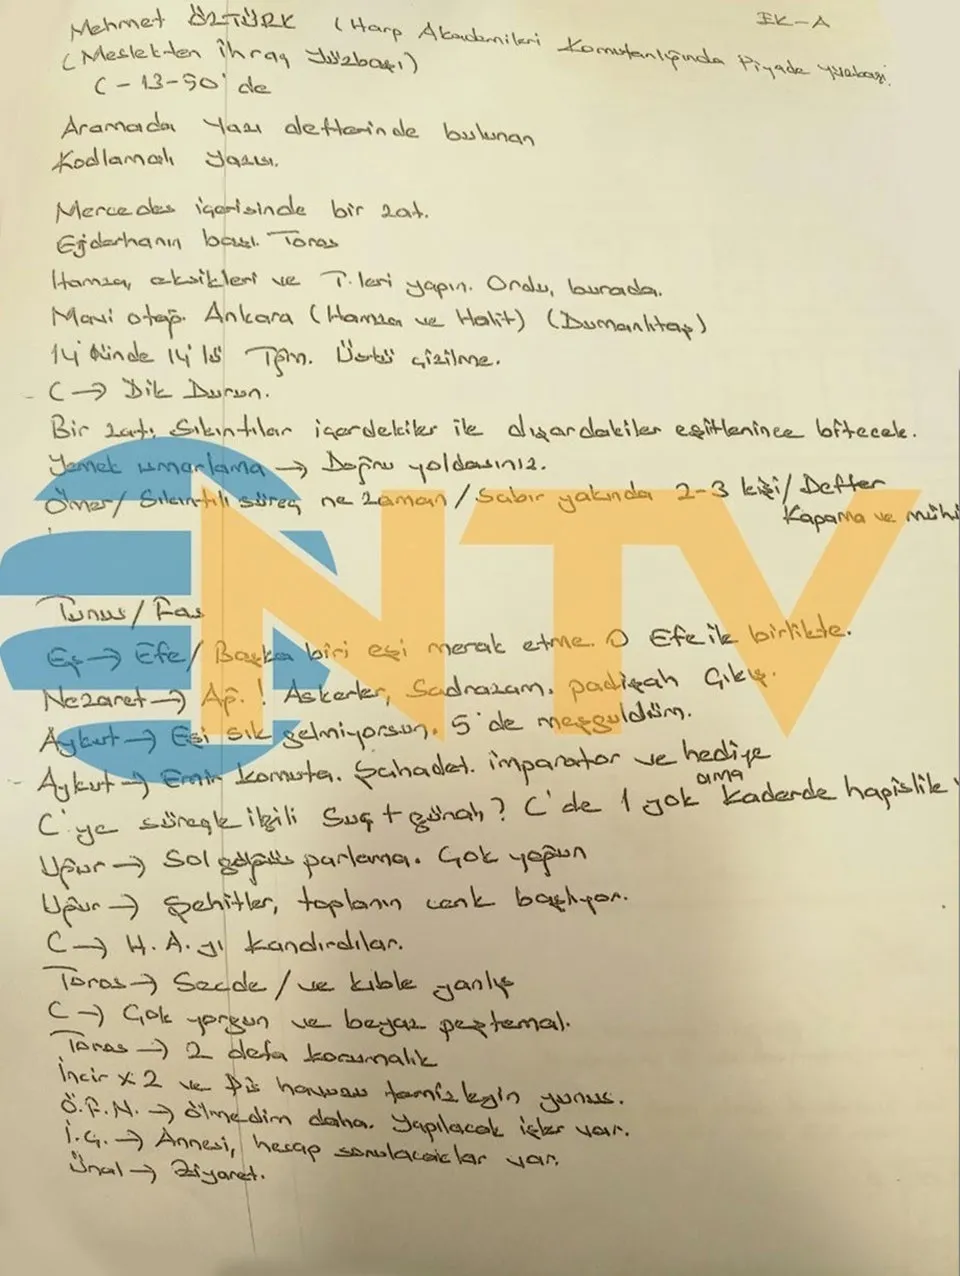 EK-A
Mehmet ÖZTÜRK (Harp Akademileri Komutanlığında Piyade yüzbaşı)
(Meslekten İhraç Yüzbaşı)
C-13-50'de
Aramada Yazı defterinde bulunan
Kodlamalı Yazısı.
Mercedes içerisinde bir zat.
Ejderhanın başı. Toros
Hamza, eksikleri ve T.leri yapın. Ordu, burada.
Mavi otağ. Ankara (Hamza ve Halit) (Dumanlıtağ)
14'ünde 14'lü Tğm. Üstü çizilme.
C → Dik Durun.
Bir zat, Sıkıntılar içerdekiler ile dışardakiler eşitlenince bitecek.
Yemek ısmarlama → Doğru yoldasınız.
Ömer/ Sıkıntılı süreç ne zaman / Sabır yakında 2-3 kişi/ Defter
Kapama ve mühü
Tunus/Fas
Eş → Efe/ Başka biri eşi merak etme. O Efe ile birlikte.
Nezaret → Ağ.! Askerler, Sadrazam. padişah Çıkış.
Aykut → Eşi sık gelmiyorsun. 5'de meşguldüm.
Aykut → Emir komuta. Şahadet. imparator ve hediye
C'ye süreçle ilgili Suç + günah? C'de 1 yok ama kaderde hapislik
Uğur → Sol göğüs parlama. Çok yoğun
Uğur → Şehitler, toplanın cenk başlıyor.
C → H.A.yı kandırdılar.
Toros → Secde / ve kıble yanlış
C → Çok yorgun ve beyaz peştemal.
Toros → 2 defa korumalık
İncir x2 ve Diş havuzu temizleyin yunus.
Ö.F.N. → Ölmedim daha. Yapılacak işler var.
İ.G. → Annesi, hesap sorulacaklar var.
Ünal → Ziyaret.
NTV